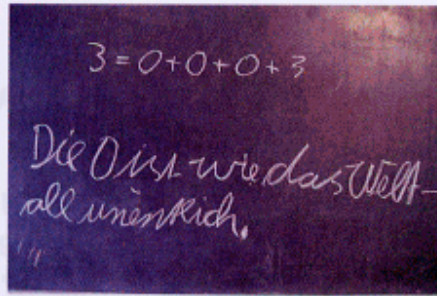 3 = 0 + 0 + 0 + 3
Die 0 ist wie das Welt-
all unentlich.